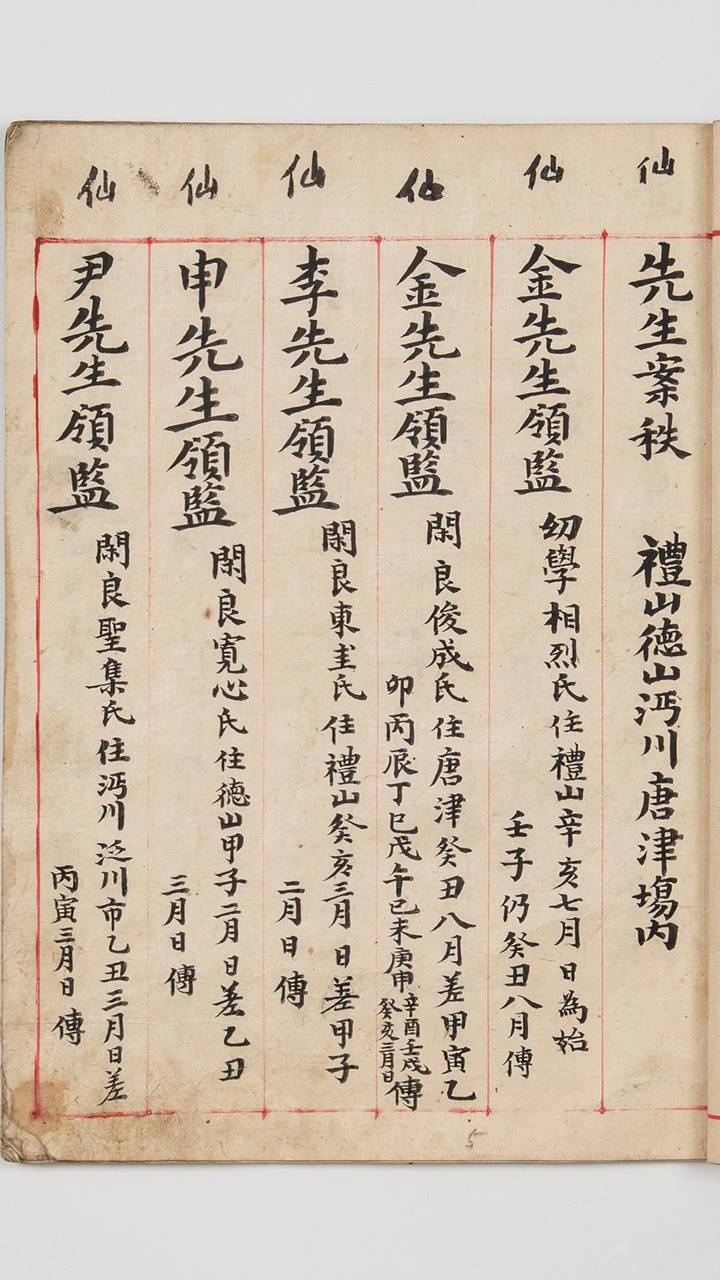 仙
先生案秩 禮山德山沔川唐津塲內
仙
金先生領監 幼學相烈氏住禮山辛亥七月日為始
壬子仍癸丑八月傳
仙
金先生領監 閑良俊成氏住唐津癸丑八月差甲寅乙
卯丙辰丁巳戊午己未庚申辛酉壬戌癸亥三月日傳
仙
李先生領監 閑良東圭氏住禮山癸亥三月日差甲子
二月日傳
仙
申先生領監 閑良寬心氏住德山甲子二月日差乙丑
三月日傳
仙
尹先生領監 閑良聖集氏住沔川泛川市乙丑三月日差
丙寅三月日傳
5